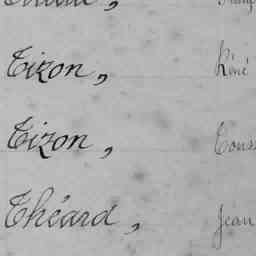 Tizon, René
Tizon,
Théard, Jean